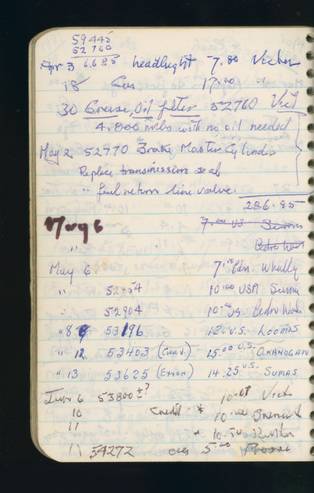 59445
52760
6685
Apr 3 headlight 7.80 Victor
18 Gas 17.00
30 Grease, Oil filter 52760 Vict
4,000 miles with no oil needed
May 2 52770 Brake Master Cylinder
Replace transmission seal
" fuel return line valve
286.85
7.00 US Sumas
May 6
May 6 7.00 Can. Whally
" 10.00 USA Sumas
" 52904 10.00 US Pedro Woolley
" 8 53196 12 U.S. Loomis
" 12 53403 (Canad) 15.00 U.S. OKANOGAN
" 13 53625 (Exxon) 14.25 U.S. SUMAS
June 6 53800 ±? 10.67 Vict
10 Credit * 10.00
11 " 10.50
11 54272 5.00